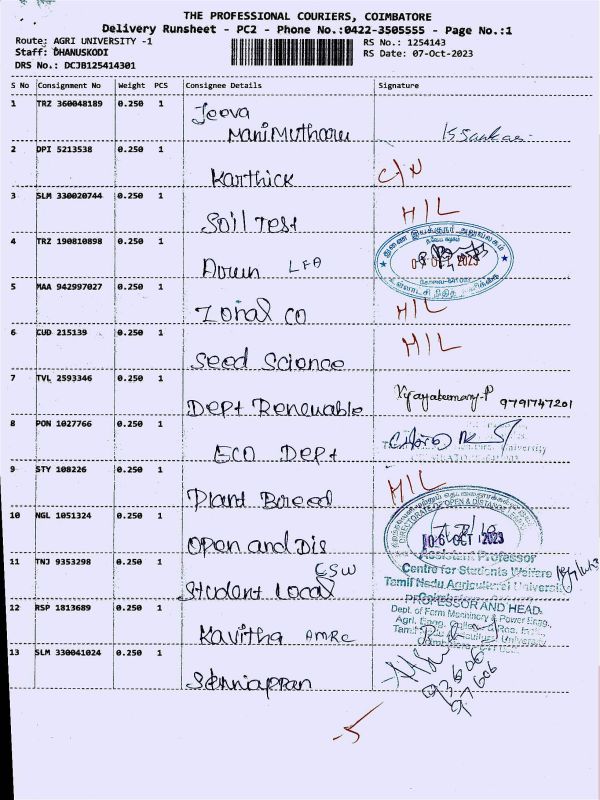 THE PROFESSIONAL COURIERS, COIMBATORE
Delivery Runsheet - PC2 - Phone No.:0422-3505555 - Page No.:1
Route: AGRI UNIVERSITY -1
RS No.: 1254143
Staff: DHANUSKODI
RS Date: 07-Oct-2023
DRS No.: DCJB125414301
S No Consignment No Weight PCS Consignee Details Signature
1 TRZ 360048189 0.250 1 Jeeva
ManiMutharu KSankar
2 DPI 5213538 0.250 1
Karthick C/N
3 SLM 330020744 0.250 1
Soil Test H/L
4 TRZ 190810898 0.250 1 துணை இயக்குநர் அலுவலகம்
Down LFA 2023
5 MAA 942997027 0.250 1
Zonal CO H/L
6 CUD 215139 0.250 1
Seed Science H/L
7 TVL 2593346 0.250 1
Dept Renewable 9791747201
8 PON 1027766 0.250 1
ECO Dept University
9 STY 108226 0.250 1
Plant Breed H/L
DIRECTORATE OF OPEN & DISTANCE
10 NGL 1051324 0.250 1
Open and Dis 06 OCT 2023
Assistant Professor
11 TNJ 9353298 0.250 1
Student Local CSW
Centre for Students Welfare
Tamil Nadu Agricultural University
Coimbatore
12 RSP 1813689 0.250 1
Kavitha AMRC
PROFESSOR AND HEAD
Dept. of Farm Machinery & Power Engg.,
Agri. Engg. College & Res. Inst.,
Tamil Nadu Agricultural University
13 SLM 330041024 0.250 1
Senniappan
-5